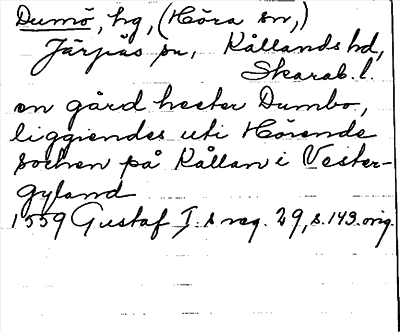 Dumö, hg, (Höra sn,)
Järpås sn, Kållands hd,
Skarab. l.
en gård heeter Dumbo,
liggiendes uti Hörende
sochen på Kållan i Vester-
gyland
1559 Gustaf I. s reg. 29, s. 143. orig.